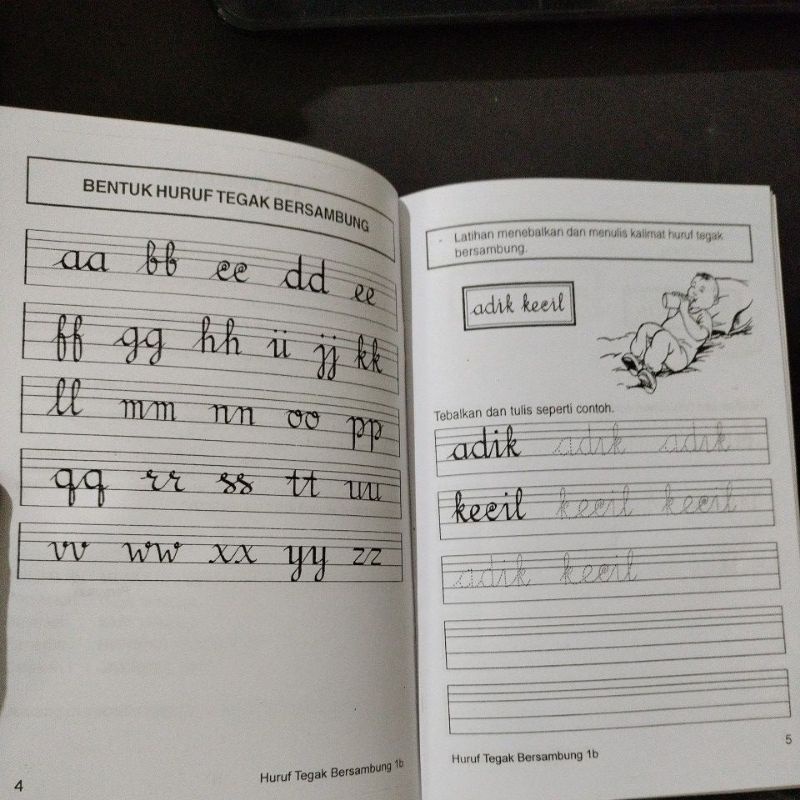 BENTUK HURUF TEGAK BERSAMBUNG
aa bb cc dd ee
ff gg hh ii jj kk
ll mm nn oo pp
qq rr ss tt uu
vv ww xx yy zz
Huruf Tegak Bersambung 1b
4
Latihan menebalkan dan menulis kalimat huruf tegak
bersambung.
adik kecil
Tebalkan dan tulis seperti contoh.
adik adik adik
kecil kecil kecil
adik kecil
Huruf Tegak Bersambung 1b
5